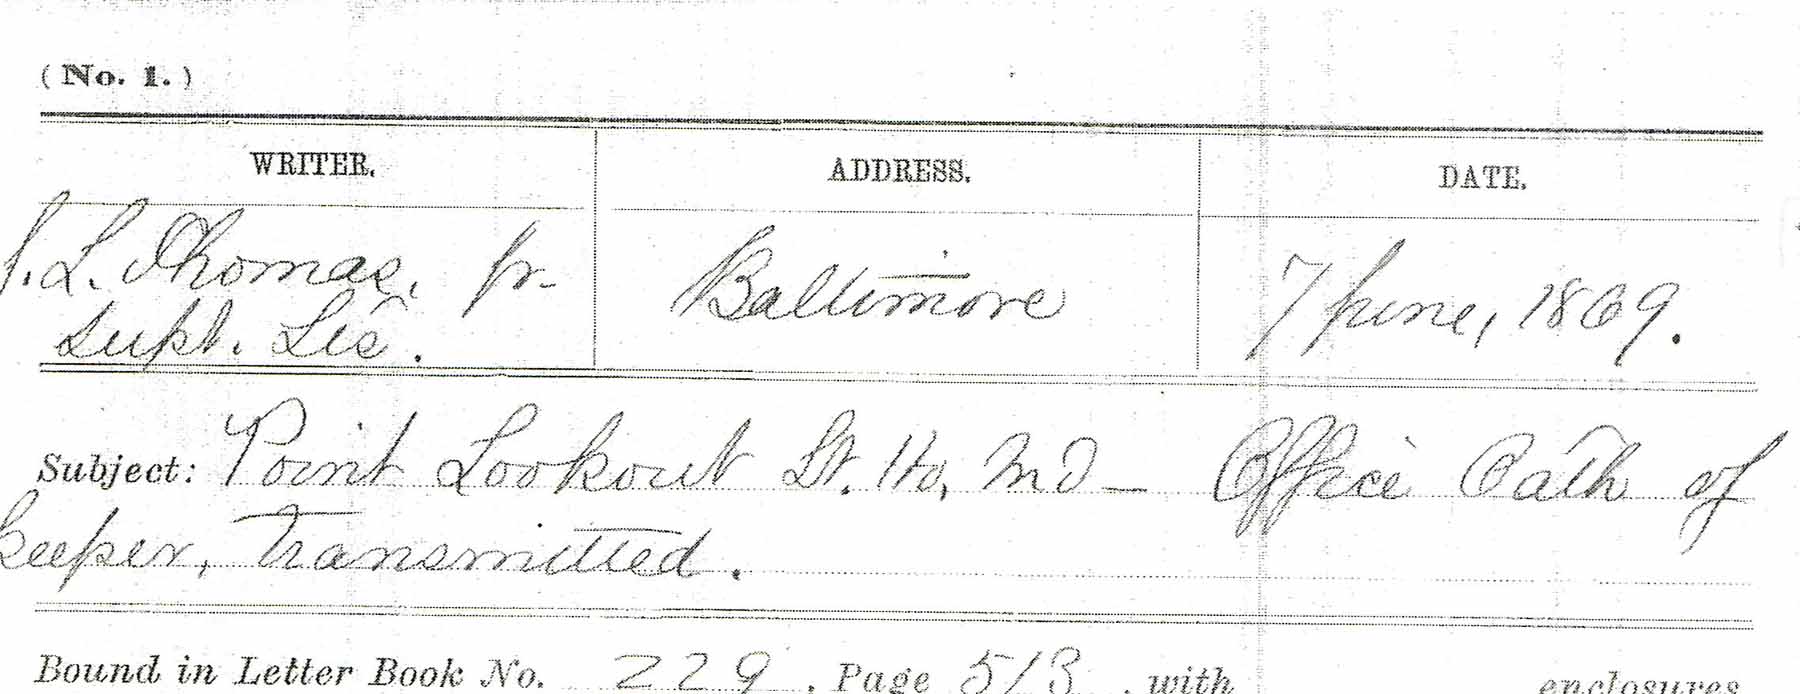 (No. 1.)
WRITER. ADDRESS. DATE.
J. L. Thomas, Jr. Baltimore 7 June, 1869.
Supt. Lts.
Subject: Point Lookout Lt. Ho, Md - Office Oath of
keeper, Transmitted.
Bound in Letter Book No. 229, Page 513, with enclosures